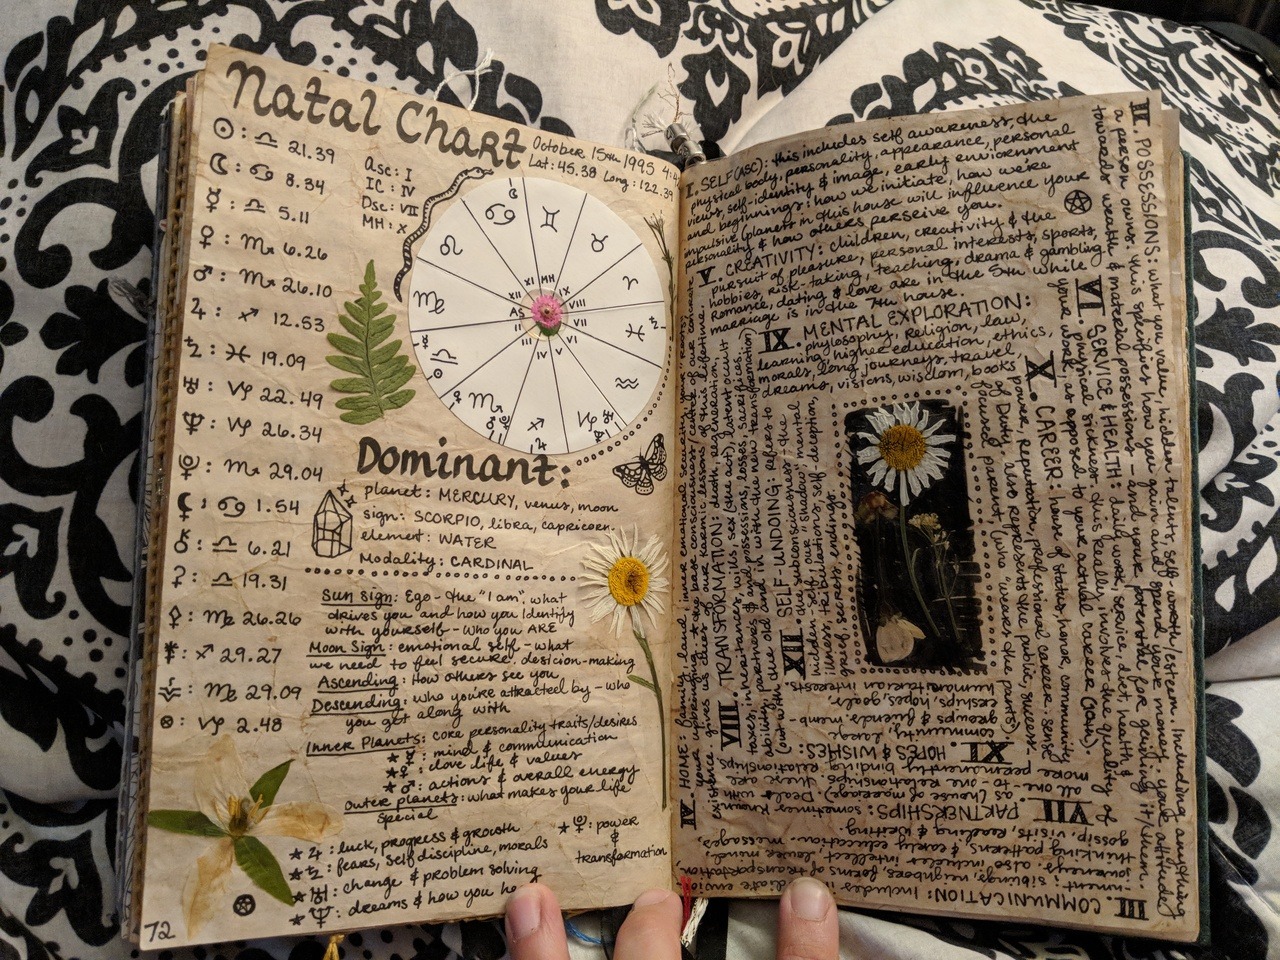 Natal Chart
October 15th 1995
Lat: 45.38 Long: 122.39
☉: ♎ 21.39
☾: ♋ 8.34
☿: ♎ 5.11
♀: ♏ 6.26
♂: ♏ 26.10
♃: ♐ 12.53
♄: ♓ 19.09
♅: ♑ 22.49
♆: ♑ 26.34
♇: ♏ 29.04
⚸: ♋ 1.54
⚷: ♎ 6.21
⚳: ♎ 19.31
⚴: ♏ 26.26
⚵: ♐ 29.27
♍ 29.09
⊗: ♑ 2.48
Asc: I
IC: IV
Dsc: VII
MH: X
♋ ♊ ♉ ♈ ♓ ♒ ♑ ♐ ♏ ♎ ♍ ♌
XII XI MH IX VIII VII VI V IV III II AS
Dominant:
planet: MERCURY, venus, moon
sign: SCORPIO, libra, capricorn.
element: WATER
Modality: CARDINAL
Sun Sign: Ego - the "I am", what
drives you and how you identify
with yourself - who you ARE
Moon Sign: emotional self - what
we need to feel secure. desicion-making
Ascending: How others see you
Descending: who you're attracted by - who
you get along with
Inner Planets: core personality traits/desires
★ ☿: mind & communication
★ ♀: love life & values
★ ♂: actions & overall energy
outer planets: what makes your life
special
★ ♃: luck, progress & growth
★ ♄: fears, self discipline, morals
★ ♅: change & problem solving
★ ♆: dreams & how you
★ ♇: power
&
transformation
72
I. SELF (ASC): this includes self awareness, the
physical body, personality, appearance, personal
views, self-identity & image, early enviornment
and beginnings: how we initiate, how we're
impulsive (planets in this house will influence your
personality & how others perseive you.
V. CREATIVITY: children, creativity & the
pursuit of pleasure, personal interests, sports,
hobbies, risk-taking, teaching, drama & gambling
Romance, dating & love are in the 5th while
marriage is in the 7th house.
IX. MENTAL EXPLORATION:
phylosophy, religion, law,
learning, higher education, ethics,
morals, long journeys, travel,
dreams, visions, wisdom, books
II. POSSESSIONS: what you value, hidden talents, self-worth/esteem. Including anything
a person owns: this specifies how you gain and spend your money. your attitude
towards wealth & material possessions - and your potential for getting it/them.
VI. SERVICE & HEALTH: daily work, service, diet, health &
physical sickness. this really involves the quality of
your work, as opposed to your actual career (CAREER CROW).
X. CAREER: house of status, honor, community
power, reputation, professional career, sense
of Duty. also represents the public, success,
focused parent, (who "wears the pants")
III. COMMUNICATION: Includes immediate
siblings, neighbors, forms of transportation
journeys. also includes intellect, lower mind,
thinking patterns, & early education
gossip, visits, reading & writing. messages,
VII. PARTNERSHIPS: sometimes known
as (house of marriage) Deals with
all one-to-one relationships. these are
more permanently binding relationships
XI. HOPES & WISHES:
community, large
groups & friends. memb-
erships, hopes, goals.
humanitarian interests.
IV. HOME: family, land, inner emotional security, your "roots",
XII. SELF-UNDOING: refers to
the subconsciousness; the
hidden-self, our shadow, mental
illness, tribulations, self-deception,
grief, secrets, endings.